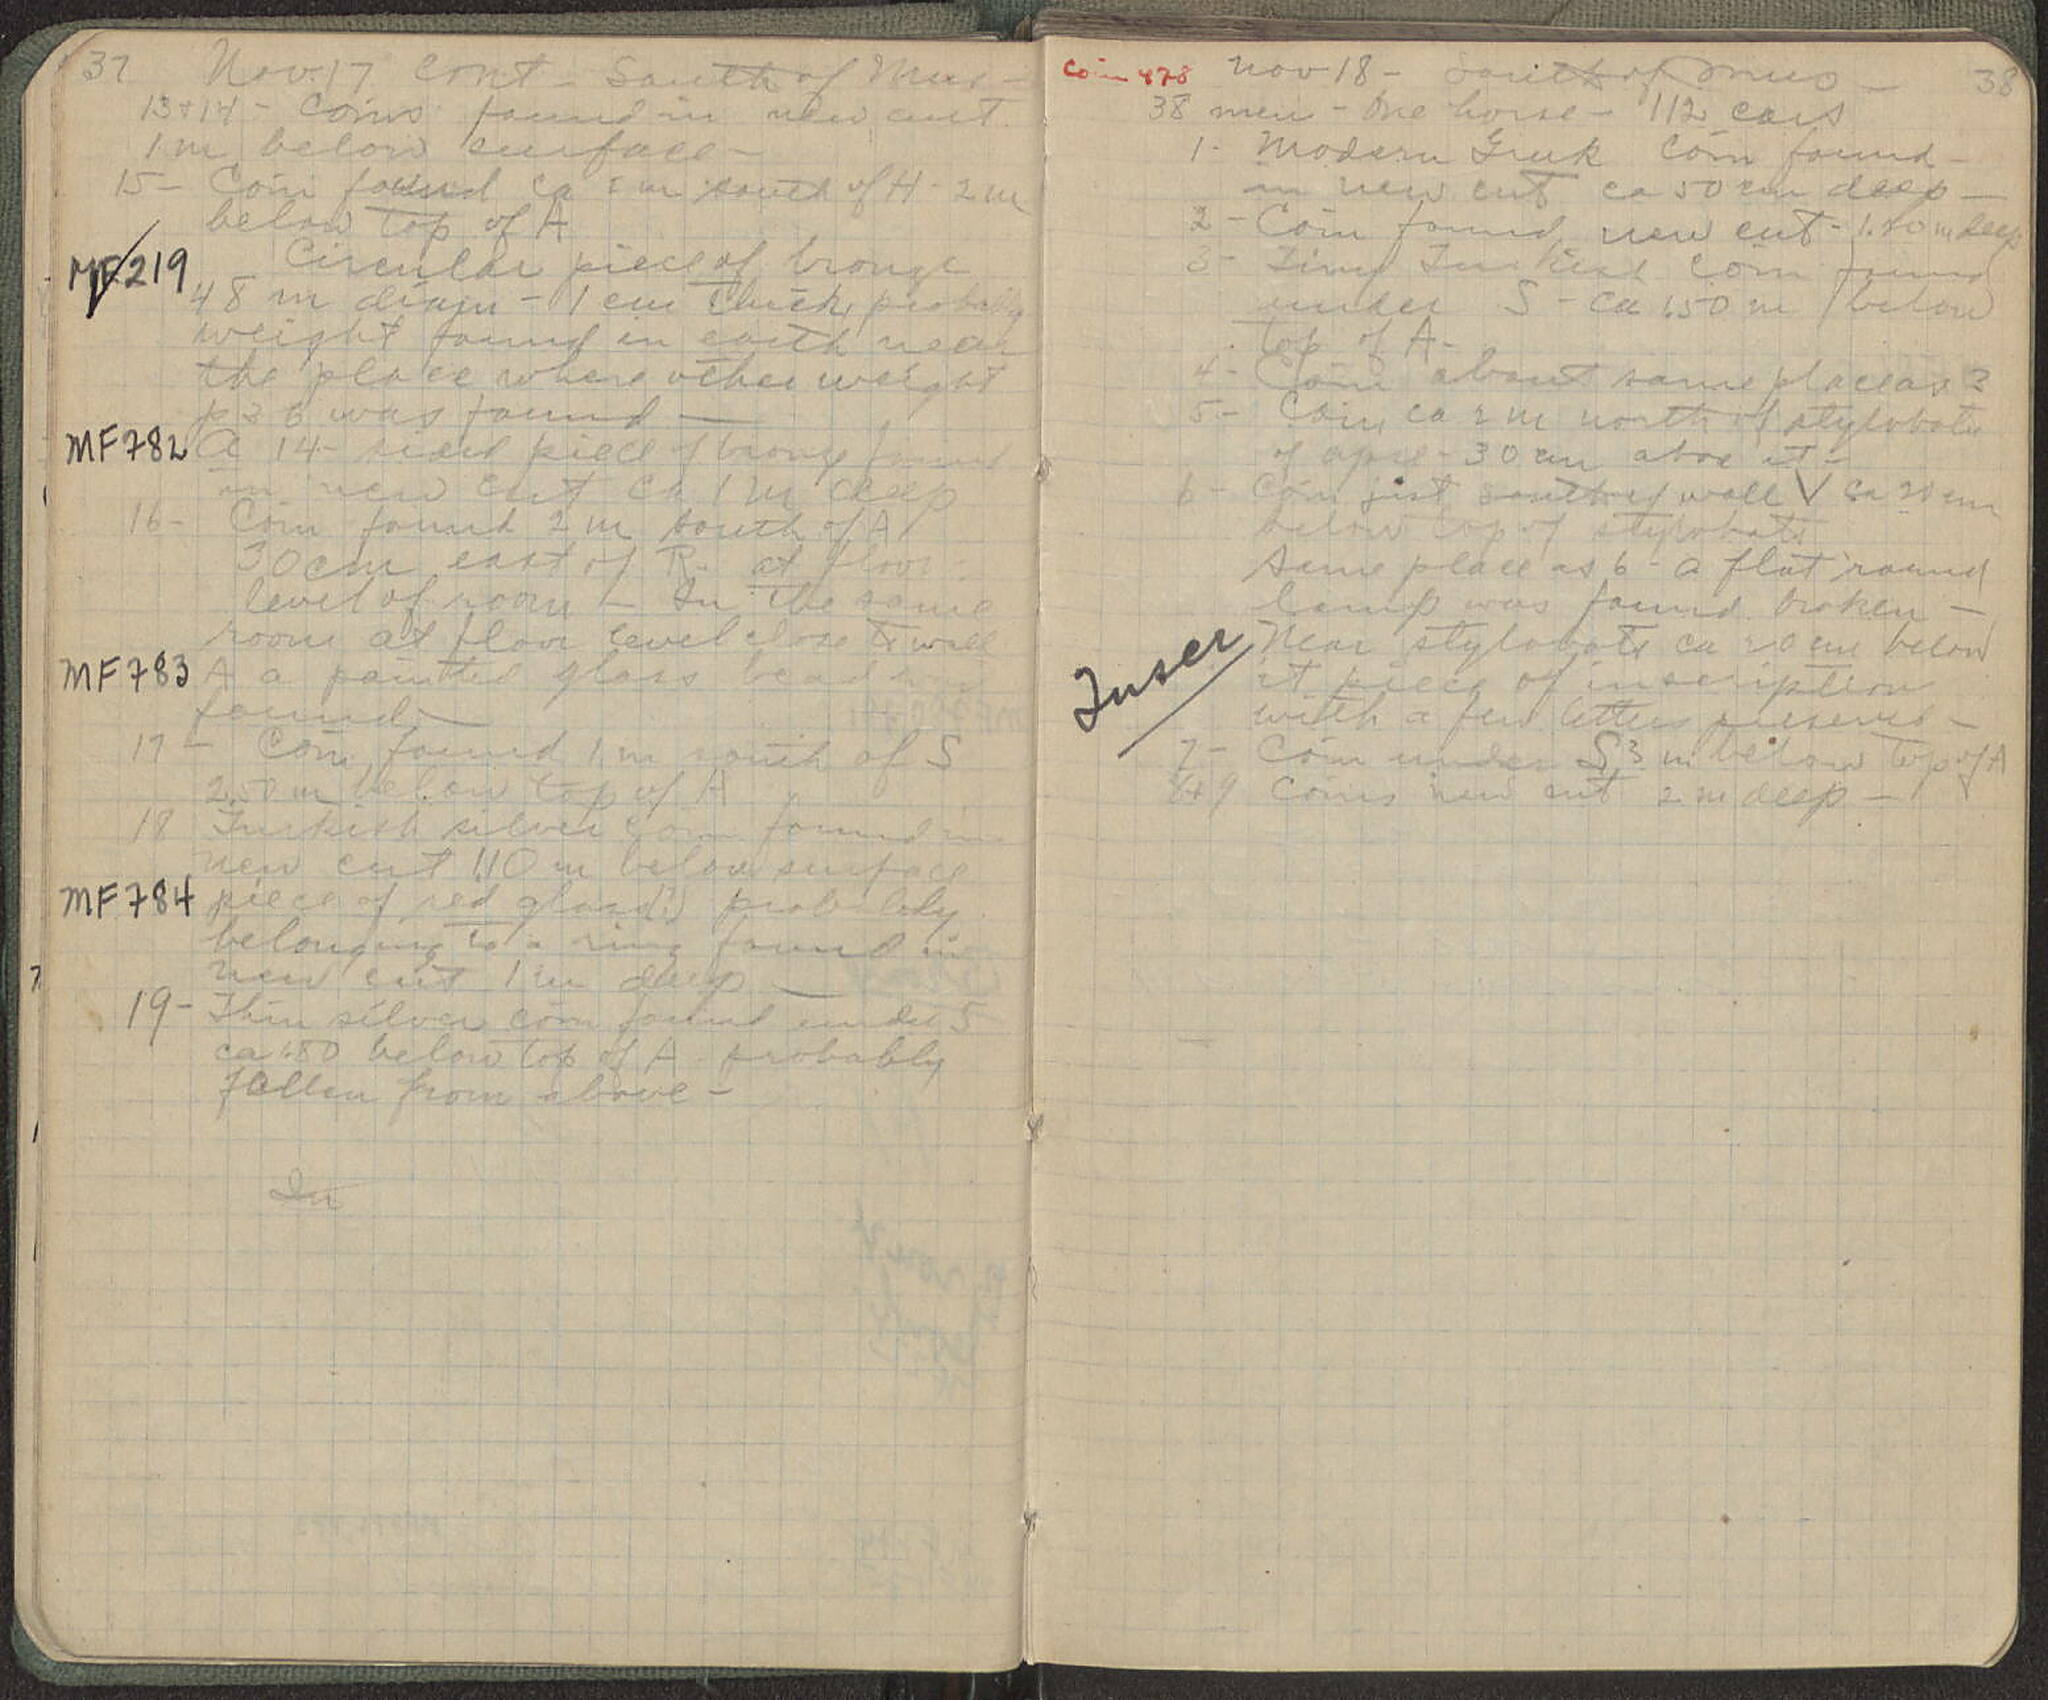 37 Nov. 17 cont - South of Mus -
13+14 - Coins found in new cut
1 m below surface -
15 - Coin found ca 2 m south of H - 2 m
below top of A
MF 219 Circular piece of bronze
48 m diam - 1 cm thick, probably
weight found in earth near
the place where other weight
p 36 was found -
MF 782 A 14-sided piece of bronze found
in new cut ca 1 m deep
16 - Coin found 2 m south of A
30 cm east of R. at floor
level of room - In the same
room at floor level close to wall
MF 783 A a painted glass bead was
found -
17 - Coin found 1 m south of S
2.50 m below top of A
18 Turkish silver coin found in
new cut 1.10 m below surface
MF 784 piece of red glass(?) probably
belonging to a ring found in
new cut 1 m deep -
19 - Thin silver coin found under S
ca 1.80 below top of A - probably
fallen from above -
In
Coin 478 Nov 18 - South of Mus - 38
38 men - One horse - 112 cars
1 - Modern Greek Coin found -
in new cut ca 50 cm deep -
2 - Coin found, new cut - 1.20 m deep
3 - Tiny Turkish Coin found
under S - ca 1.50 m below
top of A -
4 - Coin about same place as 3
5 - Coin ca 2 m north of stylobate
of apse - 30 cm above it -
6 - Coin just south of wall V ca 20 cm
below top of stylobate
Same place as 6 - a flat round
lamp was found broken -
Inscr Near stylobate ca 20 cm below
it piece of inscription
with a few letters preserved -
7 - Coin under S 3 m below top of A
8+9 Coins new cut 2 m deep -